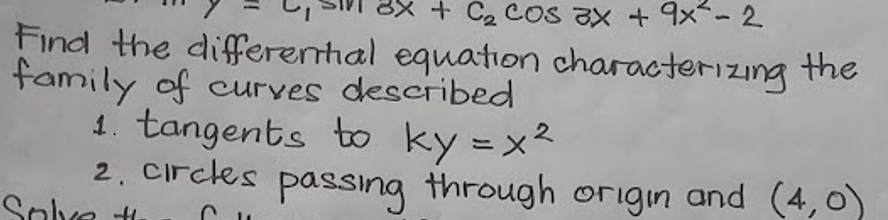 y = C₁ sin 3x + C₂ cos 3x + 9x² - 2
Find the differential equation characterizing the
family of curves described
1. tangents to ky = x²
2. circles passing through origin and (4,0)
Solve the